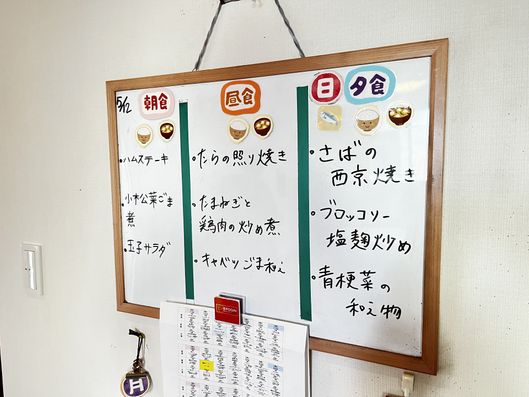 5/2
朝食
・ハムステーキ
・小松菜ごま
煮
・玉子サラダ
昼食
・たらの照り焼き
・たまねぎと
鶏肉の炒め煮
・キャベツごま和え
日
夕食
・さばの
西京焼き
・ブロッコリー
塩麹炒め
・青梗菜の
和え物
月